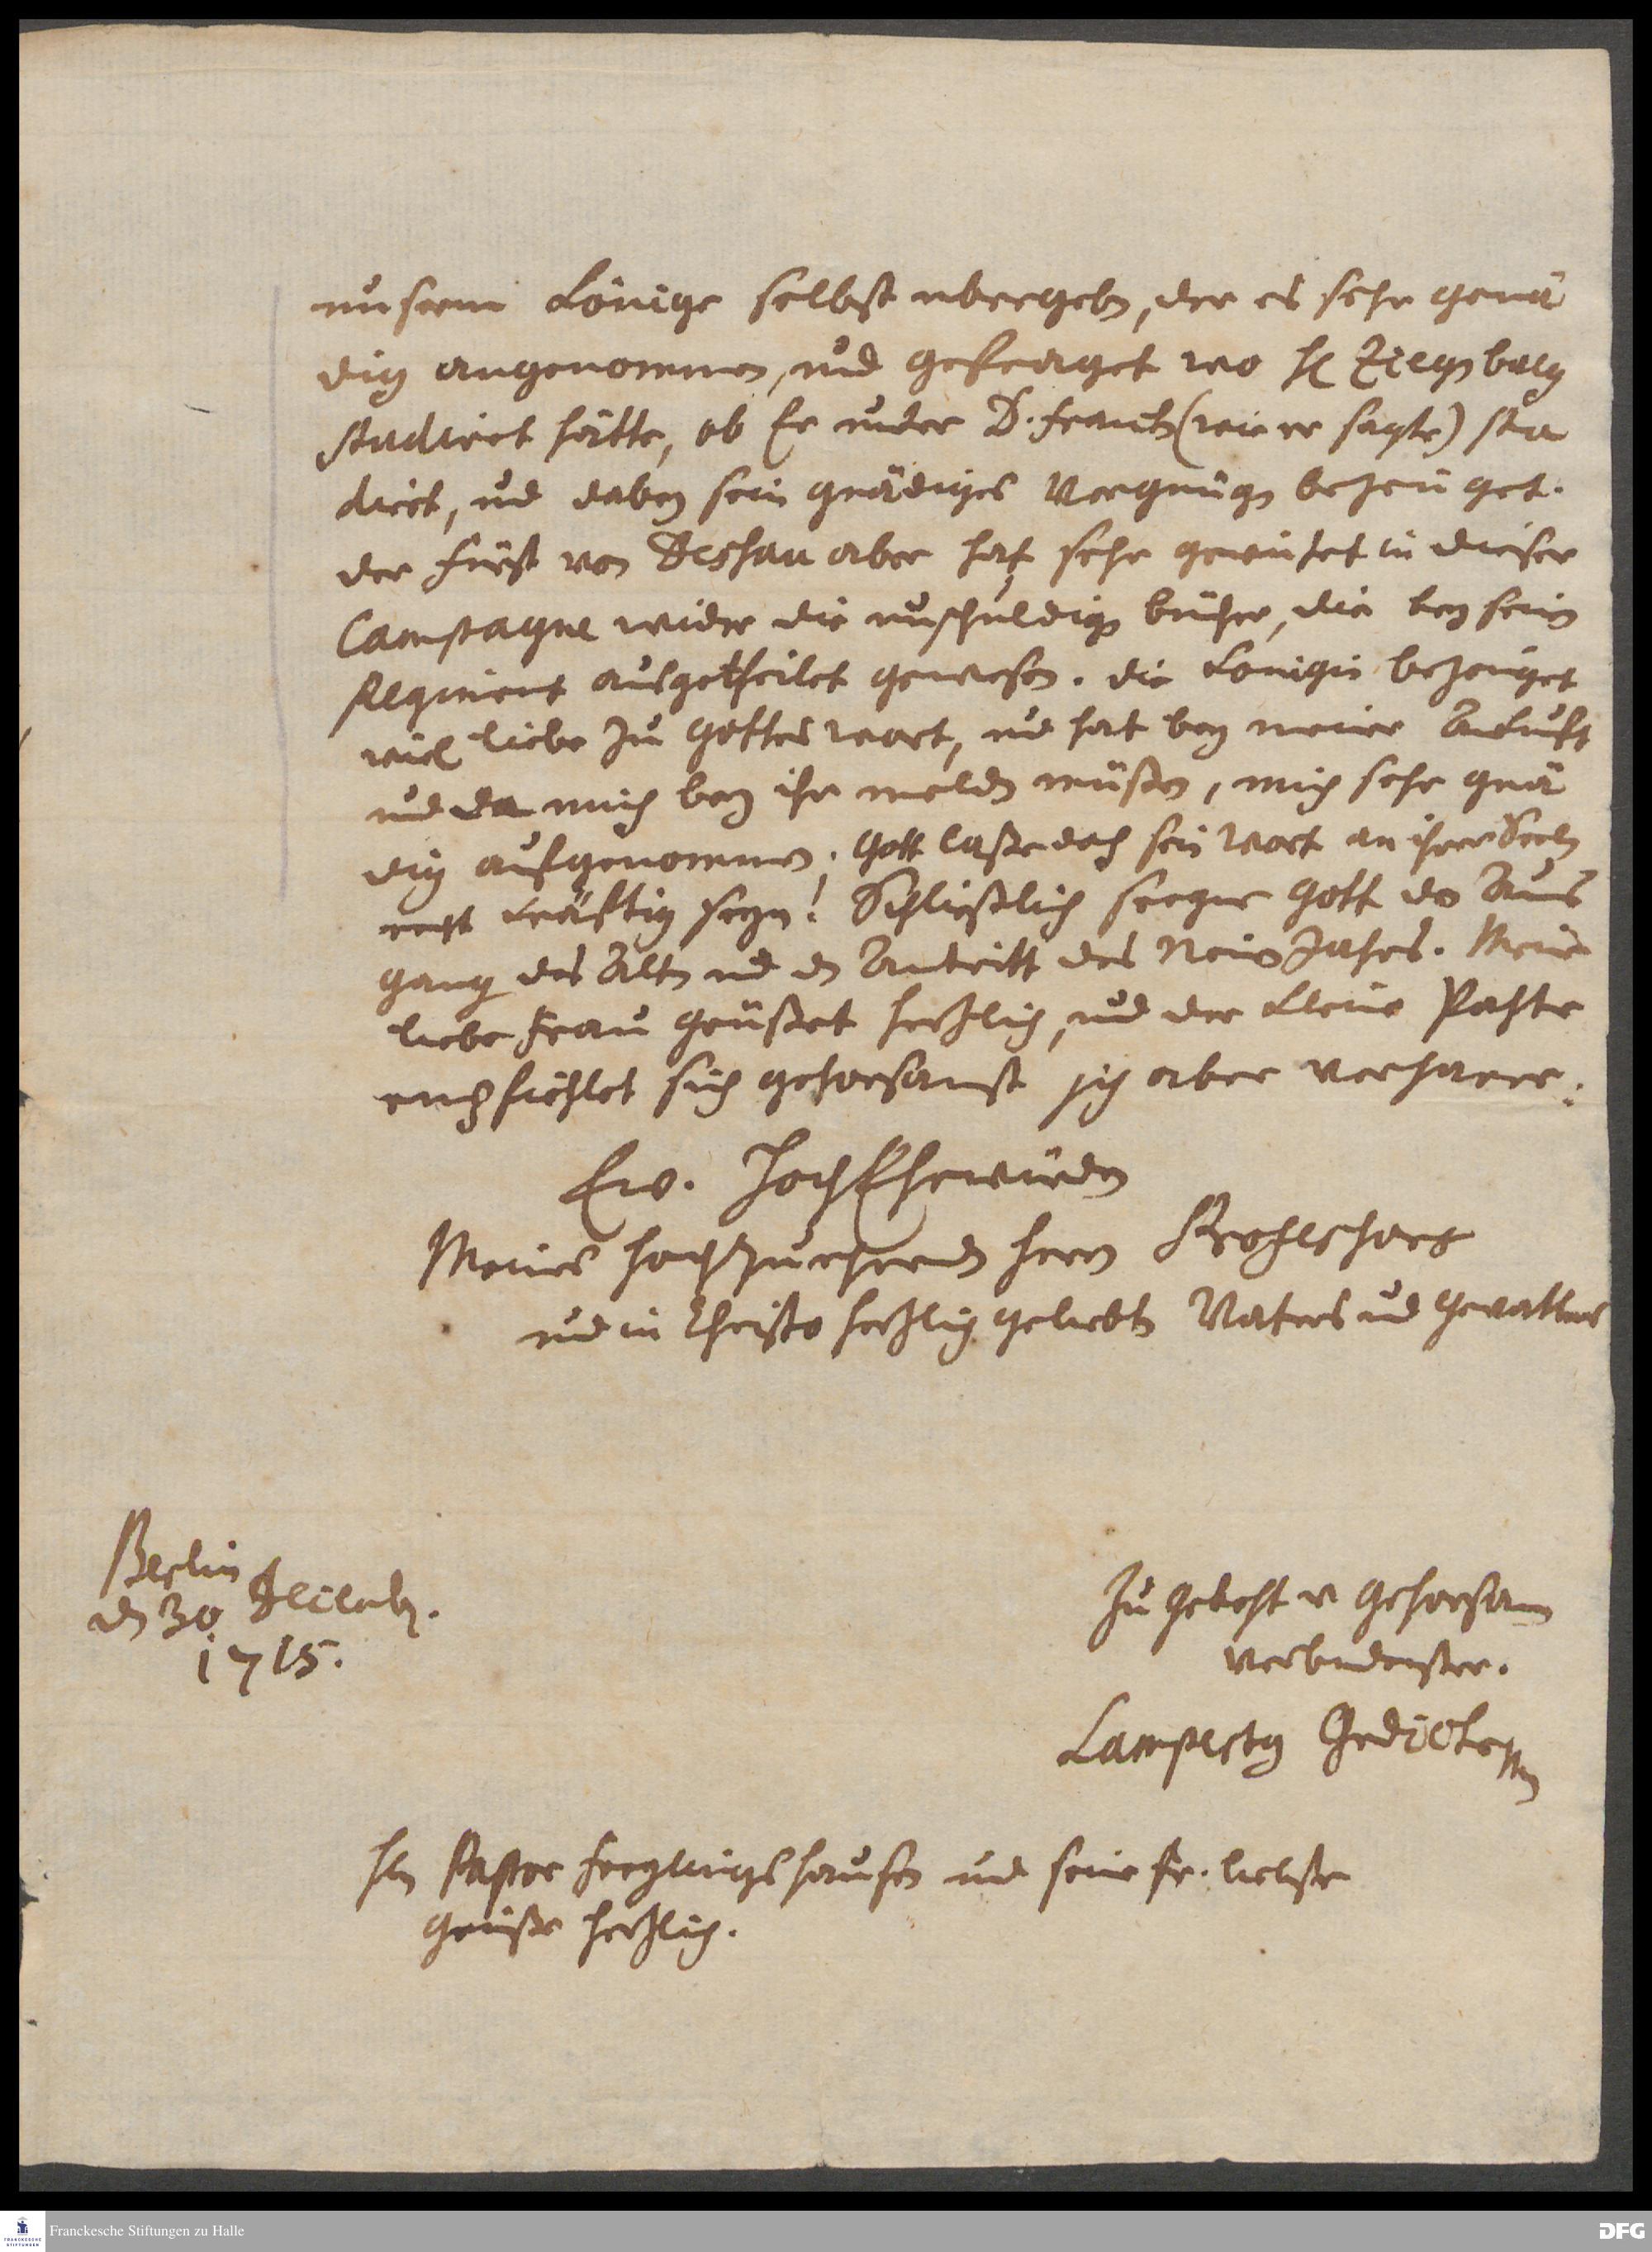 unserm Könige selbst ubergeben, der es sehr genä
dig angenommen, und gefraget wo H Ziegenbalg
studiret hätte, ob Er under D. Franck (wie er sagte) stu
diret, und dabey sein gnädiges Vergnügen bezeuget.
der Fürst von Deshau aber hat sehr gewütet in dieser
Campagne wider die unschuldigen bücher, die bey seinem
Regiment ausgetheilet gewesen. die Königin bezeuget
viel liebe zu Gottes wort, und hat bey meiner Ankunft
und da mich bey ihr melden müssen, mich sehr gnä
dig aufgenommen; Gott lasse doch sein Wort an ihrer Seelen
recht kräftig seyn! Schließlich seegne Gott den Aus
gang des Alten und den Antritt des Neuen Jahres. Meine
liebe Frau grüßet hertzlich, und der kleine Pahte
empfiehlet sich gehorsamst ich aber verharre:
Ew. HochEhrwürden
Meines hochzuehrenden Herrn
und in Christo hertzlich geliebten Vaters und Gevatters
Berlin
den 30 Decemb.
1715.
Zu Gebeht u Gehorsam
verbundenster.
Lampertus Gedicke
Hn Pastor Freylingshausen und seine Fr. liebste
grüsse hertzlich.
Franckesche Stiftungen zu Halle
FRANCKESCHE
STIFTUNGEN
DFG